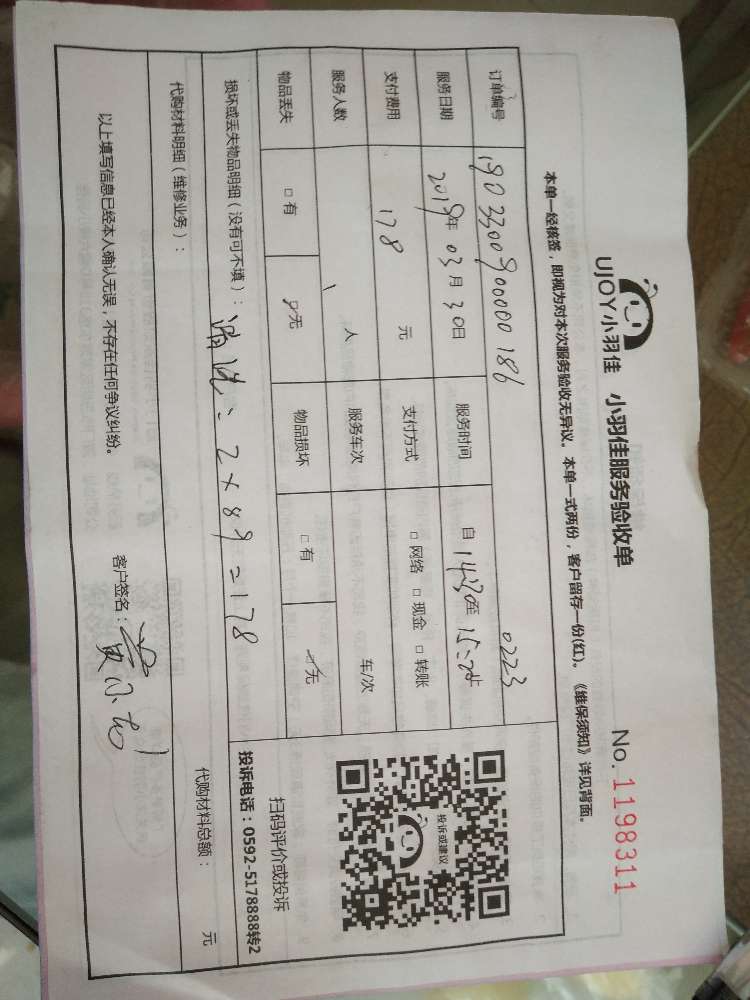 UJOY小羽佳 小羽佳服务验收单 No. 1198311
本单一经核签，即视为对本次服务验收无异议。本单一式两份，客户留存一份(红)。《维保须知》详见背面。
订单编号 190330090000186 0223
服务日期 2019年 03月 30日 服务时间 自 14:30至 15:20止
支付费用 178 元 支付方式 □ 网络 □ 现金 □ 转账
服务人数 1 人 服务车次 车/次
物品丢失 □ 有 ☑ 无 物品损坏 □ 有 ☑ 无
投诉或建议
扫码评价或投诉
投诉电话：0592-5178888转2
损坏或丢失物品明细（没有可不填）： 清洗: 2×89=178
代购材料明细（维修业务）： 代购材料总额： 元
以上填写信息已经本人确认无误，不存在任何争议纠纷。 客户签名：